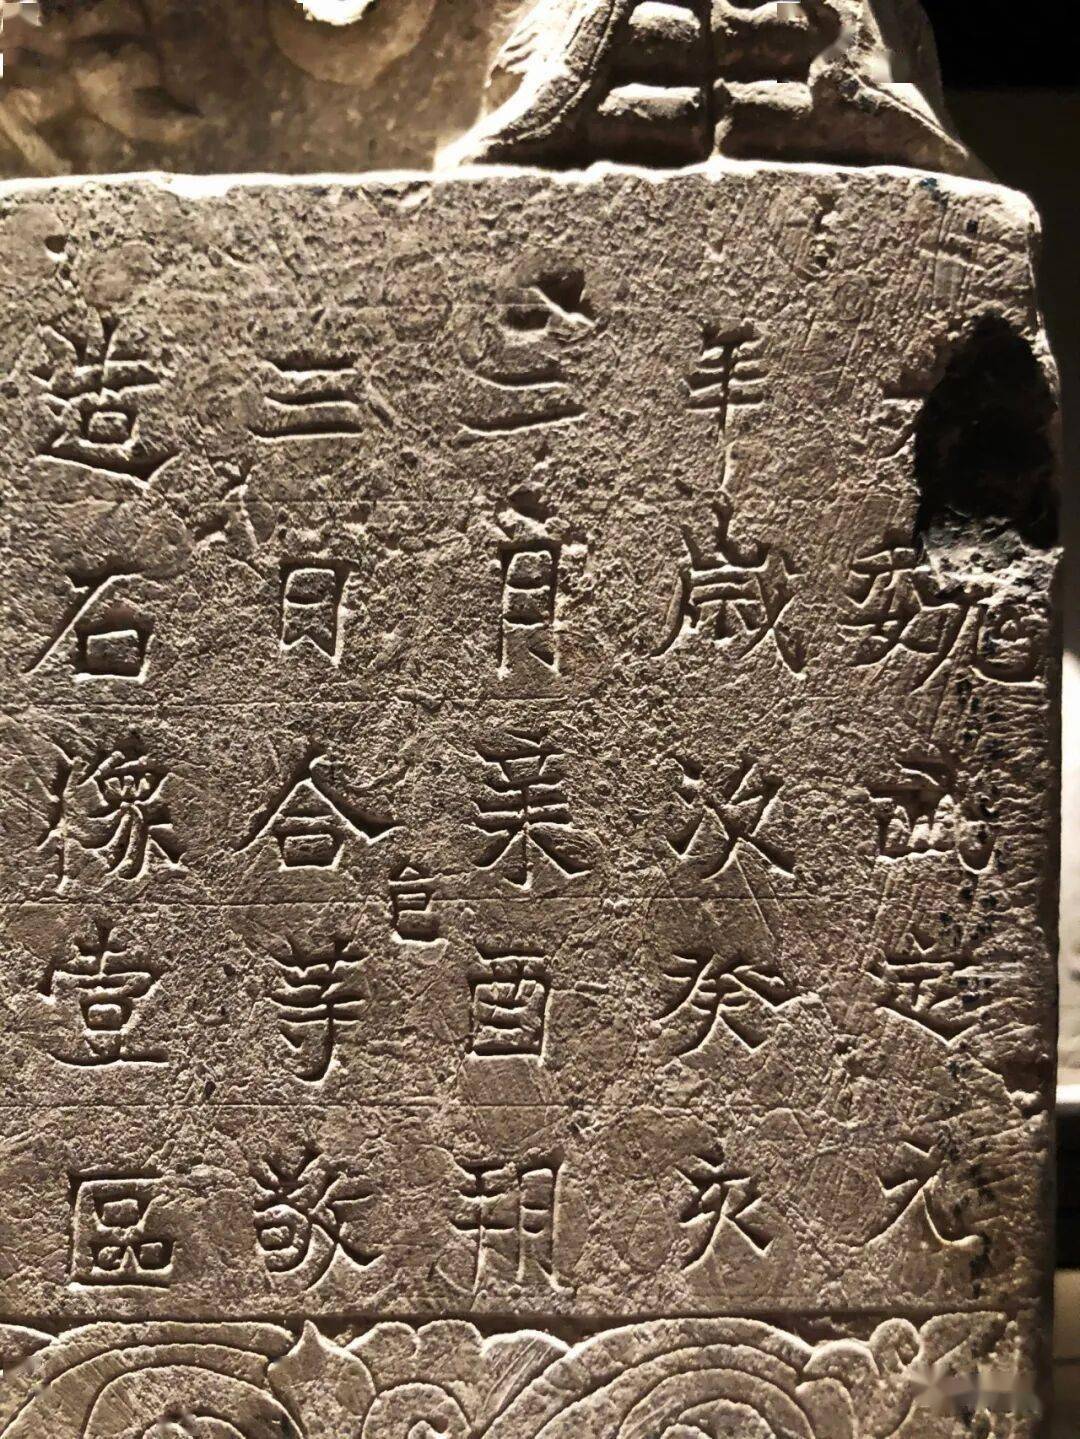 大魏武定元
年歲次癸亥
二月辛酉朔
三日合邑等敬
造石像壹區